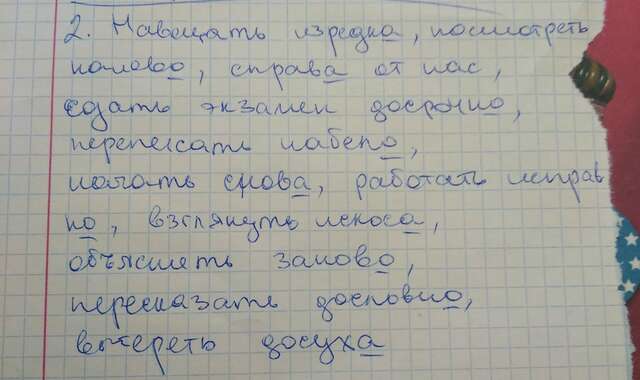 2. Навещать изредка, посмотреть
налево, справа от нас,
сдать экзамен досрочно,
переписать набело,
начать снова, работать исправ
но, взглянуть искоса,
объяснять заново,
пересказать дословно,
вытереть досуха